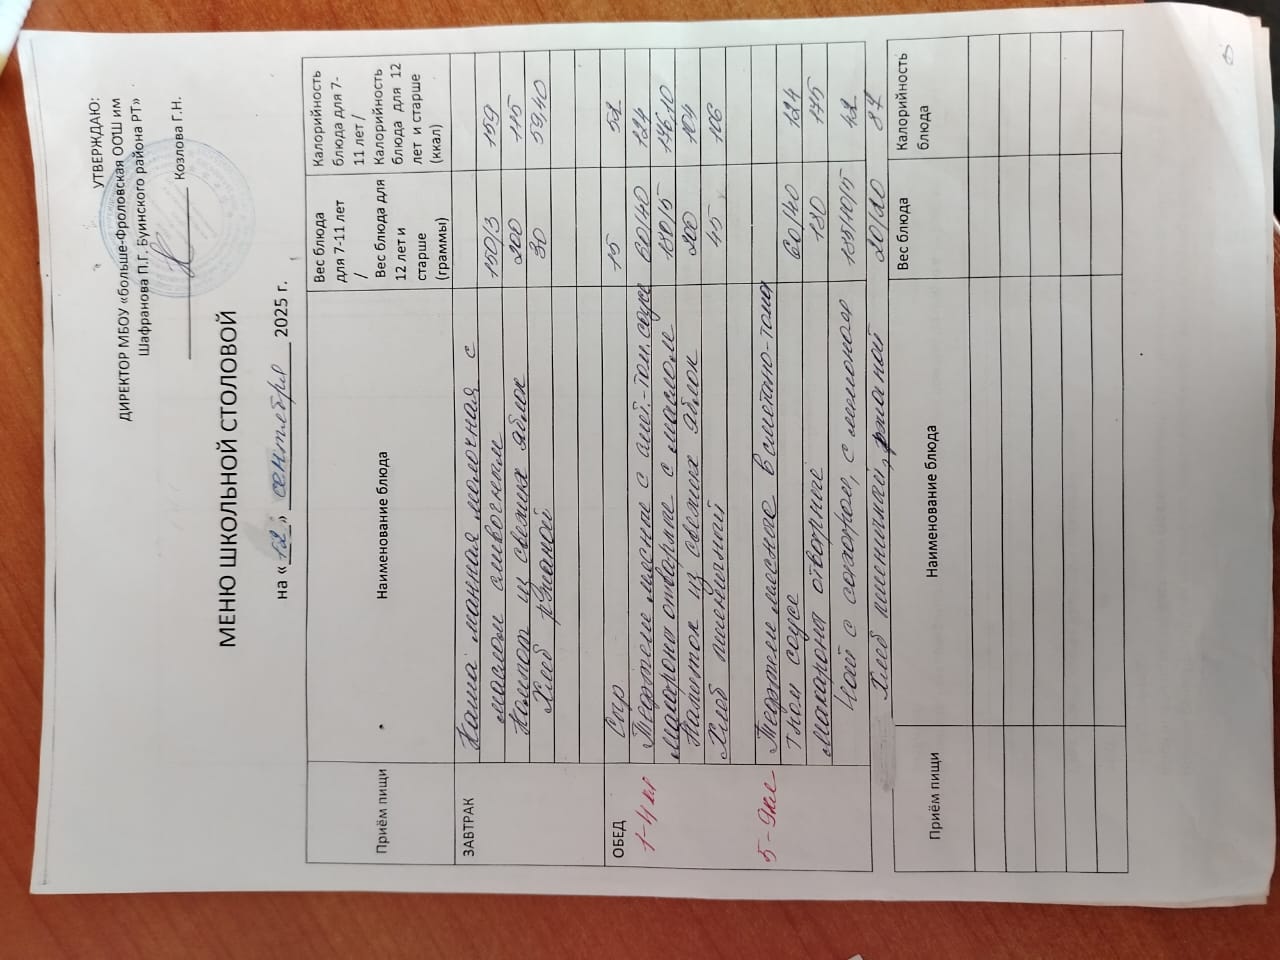 УТВЕРЖДАЮ:
ДИРЕКТОР МБОУ «больше-Фроловская ООШ им
Шафранова П.Г. Буинского района РТ»
Козлова Г.Н.
МЕНЮ ШКОЛЬНОЙ СТОЛОВОЙ
на « 12 » сентября 2025 г.
Приём пищи Наименование блюда Вес блюда для 7-11 лет / Вес блюда для 12 лет и старше (граммы) Калорийность блюда для 7-11 лет / Калорийность блюда для 12 лет и старше (ккал)
ЗАВТРАК Каша манная молочная с
маслом сливочным 150/3 159
Компот из свежих яблок 200 115
Хлеб ржаной 30 59,40
ОБЕД Сыр 15 52
1-4 кл Тефтели мясные с смет.-том. соусе 60/40 124
макароны отварные с маслом 150/5 146,10
Напиток из свежих яблок 200 104
Хлеб пшеничный 45 106
5-9кл Тефтели мясные в сметано-тома
тном соусе 60/40 124
макароны отварные 130 145
Чай с сахаром, с лимоном 185/10/5 42
Хлеб пшеничный, ржаной 20/20 87
Приём пищи Наименование блюда Вес блюда Калорийность блюда